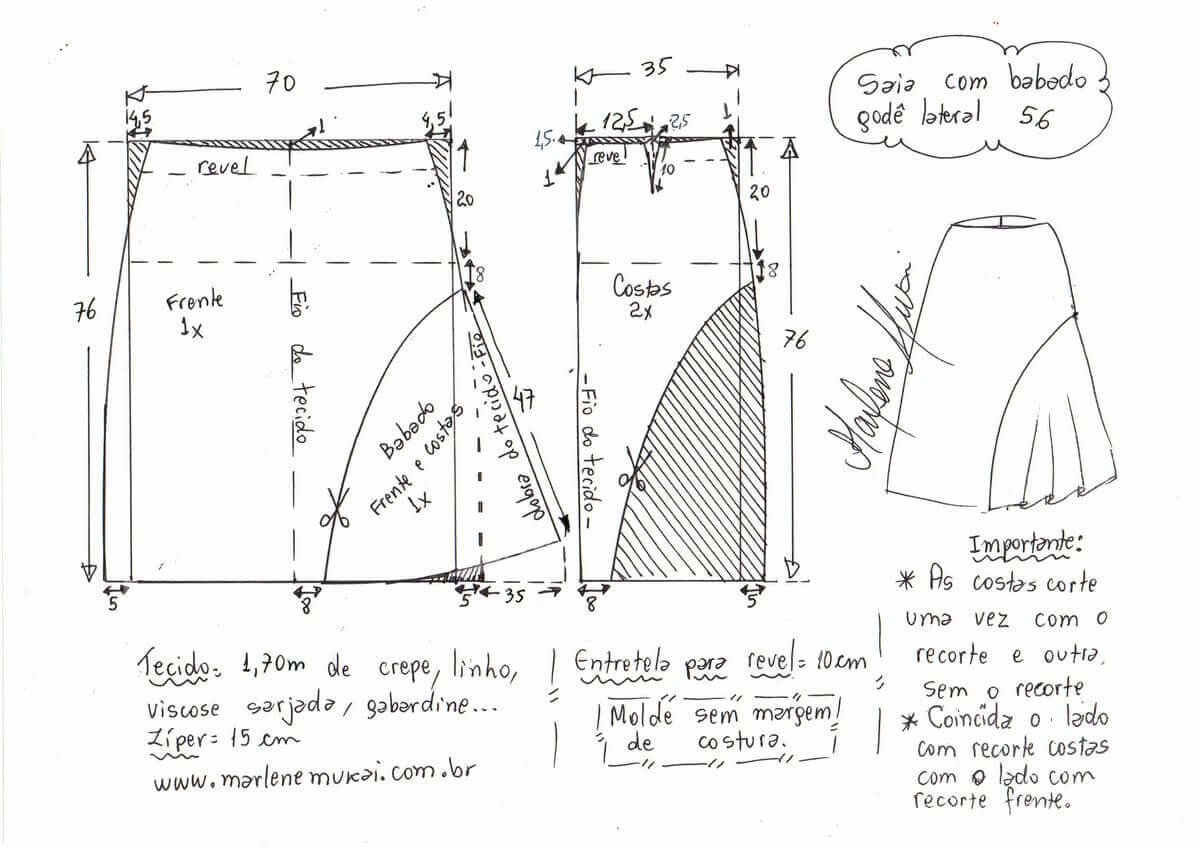 Saia com babado
godê lateral 56
70
4,5
1
4,5
revel
76
20
8
Frente
1x
Fio do tecido
Babado
Frente e costas
1x
Fio
dobra do tecido
47
5
8
5
35
35
12,5
2,5
1
1,5
revel
1
10
20
8
Costas
2x
76
Fio do tecido
8
5
Marlene Mukai
Tecido= 1,70m de crepe, linho,
viscose sarjada, gabardine...
Zíper= 15 cm
www.marlenemukai.com.br
Entretela para revel= 10cm
Molde sem margem
de costura.
Importante:
* As costas corte
uma vez com o
recorte e outra
sem o recorte
* Coincida o lado
com recorte costas
com o lado com
recorte frente.